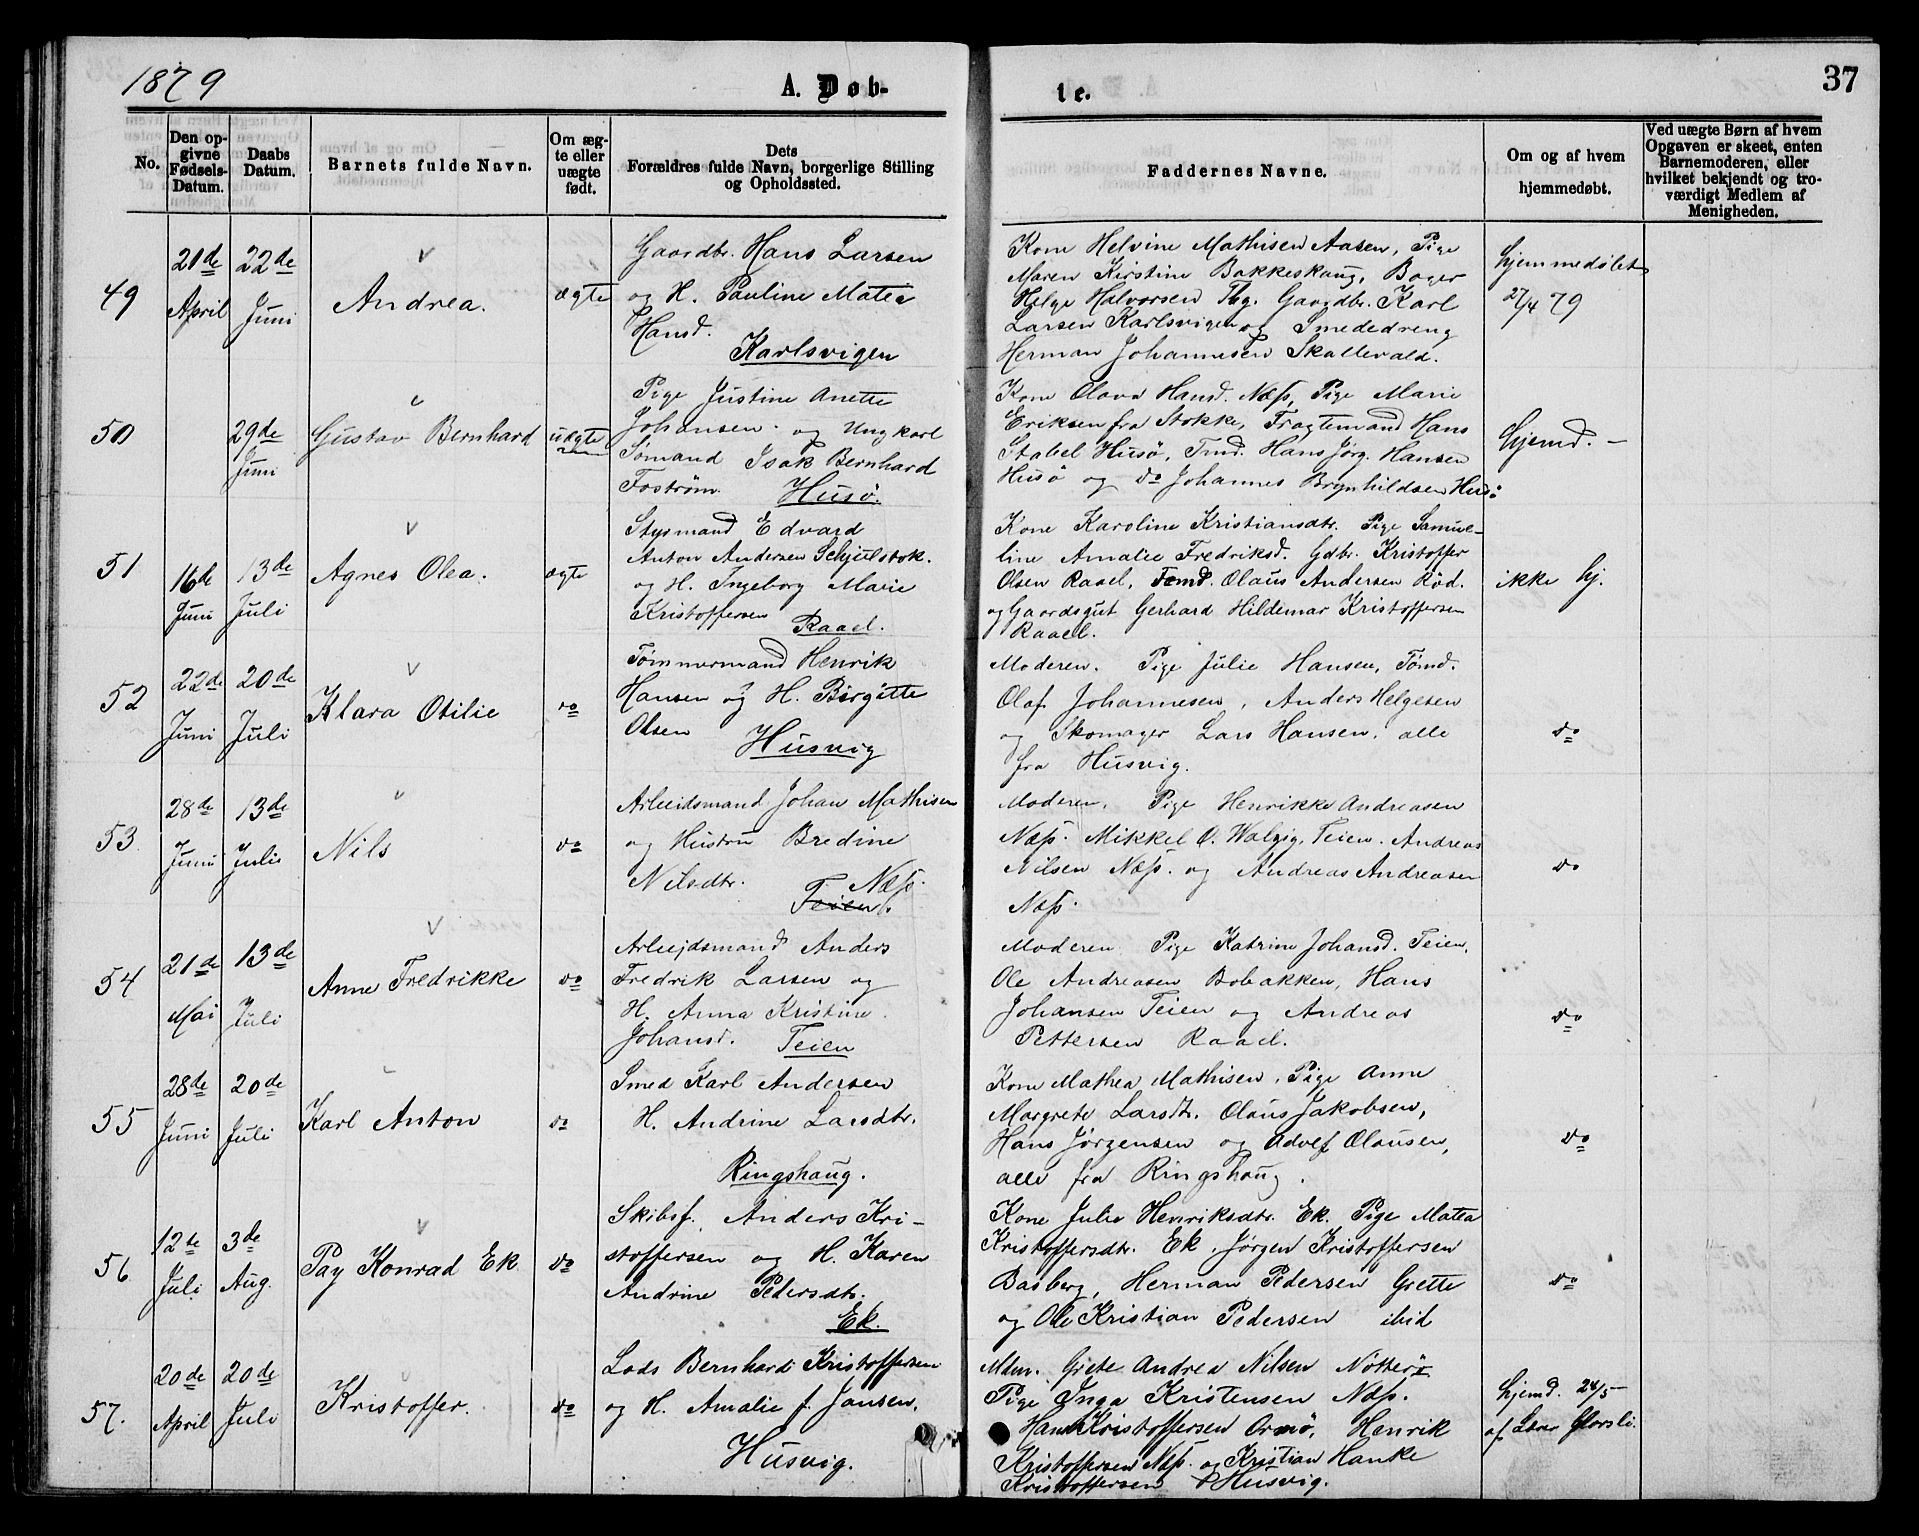 1879
A. Døb-
te.
37
No.
Den op-
givne
Fødsels-
Datum.
Daabs
Datum.
Barnets fulde Navn.
Om æg-
te eller
uægte
født.
Dets
Forældres fulde Navn, borgerlige Stilling
og Opholdssted.
Faddernes Navne.
Om og af hvem
hjemmedøbt.
Ved uægte Børn af hvem
Opgaven er skeet, enten
Barnemoderen, eller
hvilket bekjendt og tro-
værdigt Medlem af
Menigheden.
49
21de
April
22de
Juni
Andrea.
ægte
Gaardbr. Hans Larsen
og H. Pauline Matea
Hansd.
Karlsvigen
Kone Helvine Mathisen Aasen, Pige
Maren Kirstine Bakkeskaug, Bager
Helge Halvorsen Tbg. Gaardbr. Karl
Larsen Karlsvigen og Smededreng
Herman Johannesen Skallevald.
hjemmedøbt
27/4 79
50
29de
Juni
Gustav Bernhard
uægte
Pige Justine Anette
Johansen. og Ungkarl
Sømand Isak Bernhard
Fostrøm. Husø.
Kone Olava Hansd. Næss, Pige Marie
Eriksen fra Stokke, Fragtemand Hans
Stabel Husø, Tmd. Hans Jørg. Hansen
Husø og do Johannes Brynhildsen Husø
hjemd. -
51
16de
Juni
13de
Juli
Agnes Olea.
ægte
Styrmand Edvard
Anton Andersen Schjulstok.
og H. Ingeborg Marie
Kristoffersen Raael.
Kone Karoline Kristiansdtr. Pige Samue-
line Amalie Fredriksd. Gdbr. Kristoffer
Olsen Raael, Tømd. Olaus Andersen Rød.
og Gaardsgut Gerhard Hildemar Kristoffersen
Raael.
ikke hj.
52
22de
Juni
20de
Juli
Klara Otilie
do
Tømmermand Henrik
Hansen og H. Birgitte
Olsen Husvig
Moderen. Pige Julie Hansen, Tømd.
Olaf Johannesen, Anders Helgesen
og Skomager Lars Hansen, alle
fra Husvig.
do
53
28de
Juni
13de
Juli
Nils
do
Arbeidsmand Johan Mathisen
og Hustru Bredine
Nilsdtr. Næss.
Teien.
Moderen, Pige Henrikke Andreasen
Næss. Mikkel O. Teien. Andreas
Nilsen Næss. og Andreas Andreasen
Næss.
do
54
21de
Mai
13de
Juli
Anne Fredrikke
do
Arbejdsmand Anders
Fredrik Larsen og
H. Anna Kristine
Johansd. Teien
Moderen Pige Katrine Johansd. Teien,
Ole Andreasen Bobakken, Hans
Johansen Teien og Andreas
Pettersen Raael.
do
55
28de
Juni
20de
Juli
Karl Anton
do
Smed Karl Andersen
H. Andrine Larsdtr.
Ringshaug.
Kone Mathea Mathisen, Pige Anne
Margrete Larsdtr. Olaus Jakobsen,
Hans Jørgensen og Advef Olausen,
alle fra Ringshaug.
do
56
12te
Juli
3de
Aug.
Pay Konrad Ek
do
Skibsf. Anders Kri-
stoffersen og H. Karen
Andrine Pedersdtr.
Ek.
Kone Julie Henriksdtr. Ek. Pige Matea
Kristoffersdtr. Ek, Jørgen Kristoffersen
Basberg, Herman Pedersen Grette
og Ole Kristian Pedersen ibid
do
57.
20de
April
20de
Juli
Kristoffer.
do
Lods Bernhard Kristoffersen
og H. Amalie f. Jansen.
Husvig.
Mdm. Grete Andrea Nilsen Nøtterø
Pige Inga Kristensen Næss.
Hans Kristoffersen Ormø, Henrik
Kristoffersen Næss. og Kristian Hanke
Kristoffersen Husvig.
hjemd. 24/5
af Lærer Glorsli